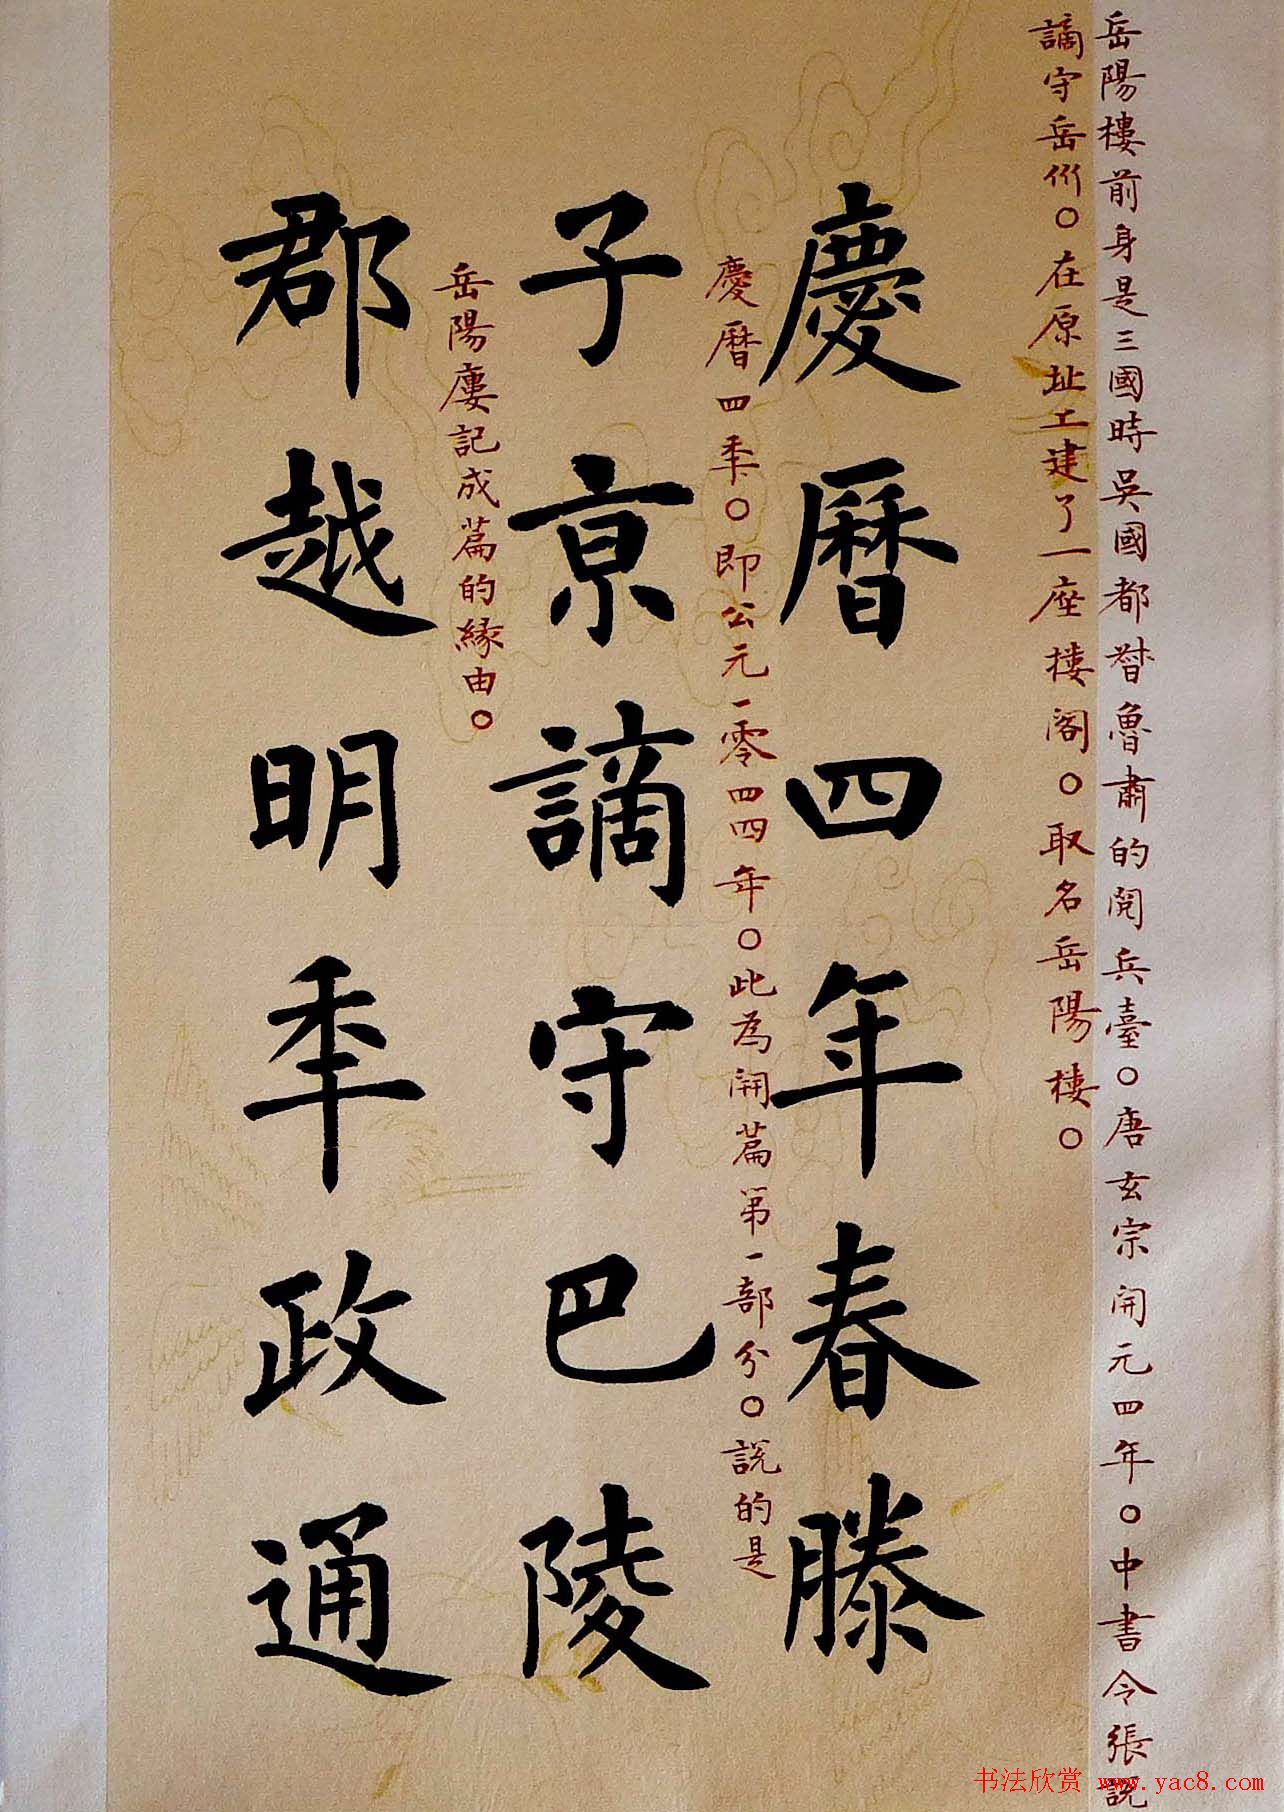 岳陽樓前身是三國時吳國都督魯肅的閱兵臺○唐玄宗開元四年○中書令張説
謫守岳州○在原址上建了一座樓閣○取名岳陽樓○
慶曆四年春滕
慶曆四秊○即公元一零四四年○此為開篇第一部分○説的是
子京謫守巴陵
岳陽廔記成篇的緣由○
郡越明秊政通
书法欣赏 www.yac8.com